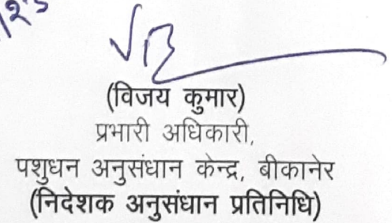 (विजय कुमार)
प्रभारी अधिकारी,
पशुधन अनुसंधान केन्द्र, बीकानेर
(निदेशक अनुसंधान प्रतिनिधि)